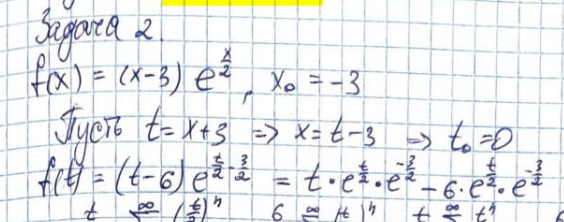 Задача 2.
f(x) = (x-3) e^{x/2}, x₀ = -3
Пусть t = x+3 => x = t-3 => t₀ = 0
f(t) = (t-6) e^{t/2 - 3/2} = t · e^{t/2} · e^{-3/2} - 6 · e^{t/2} · e^{-3/2}